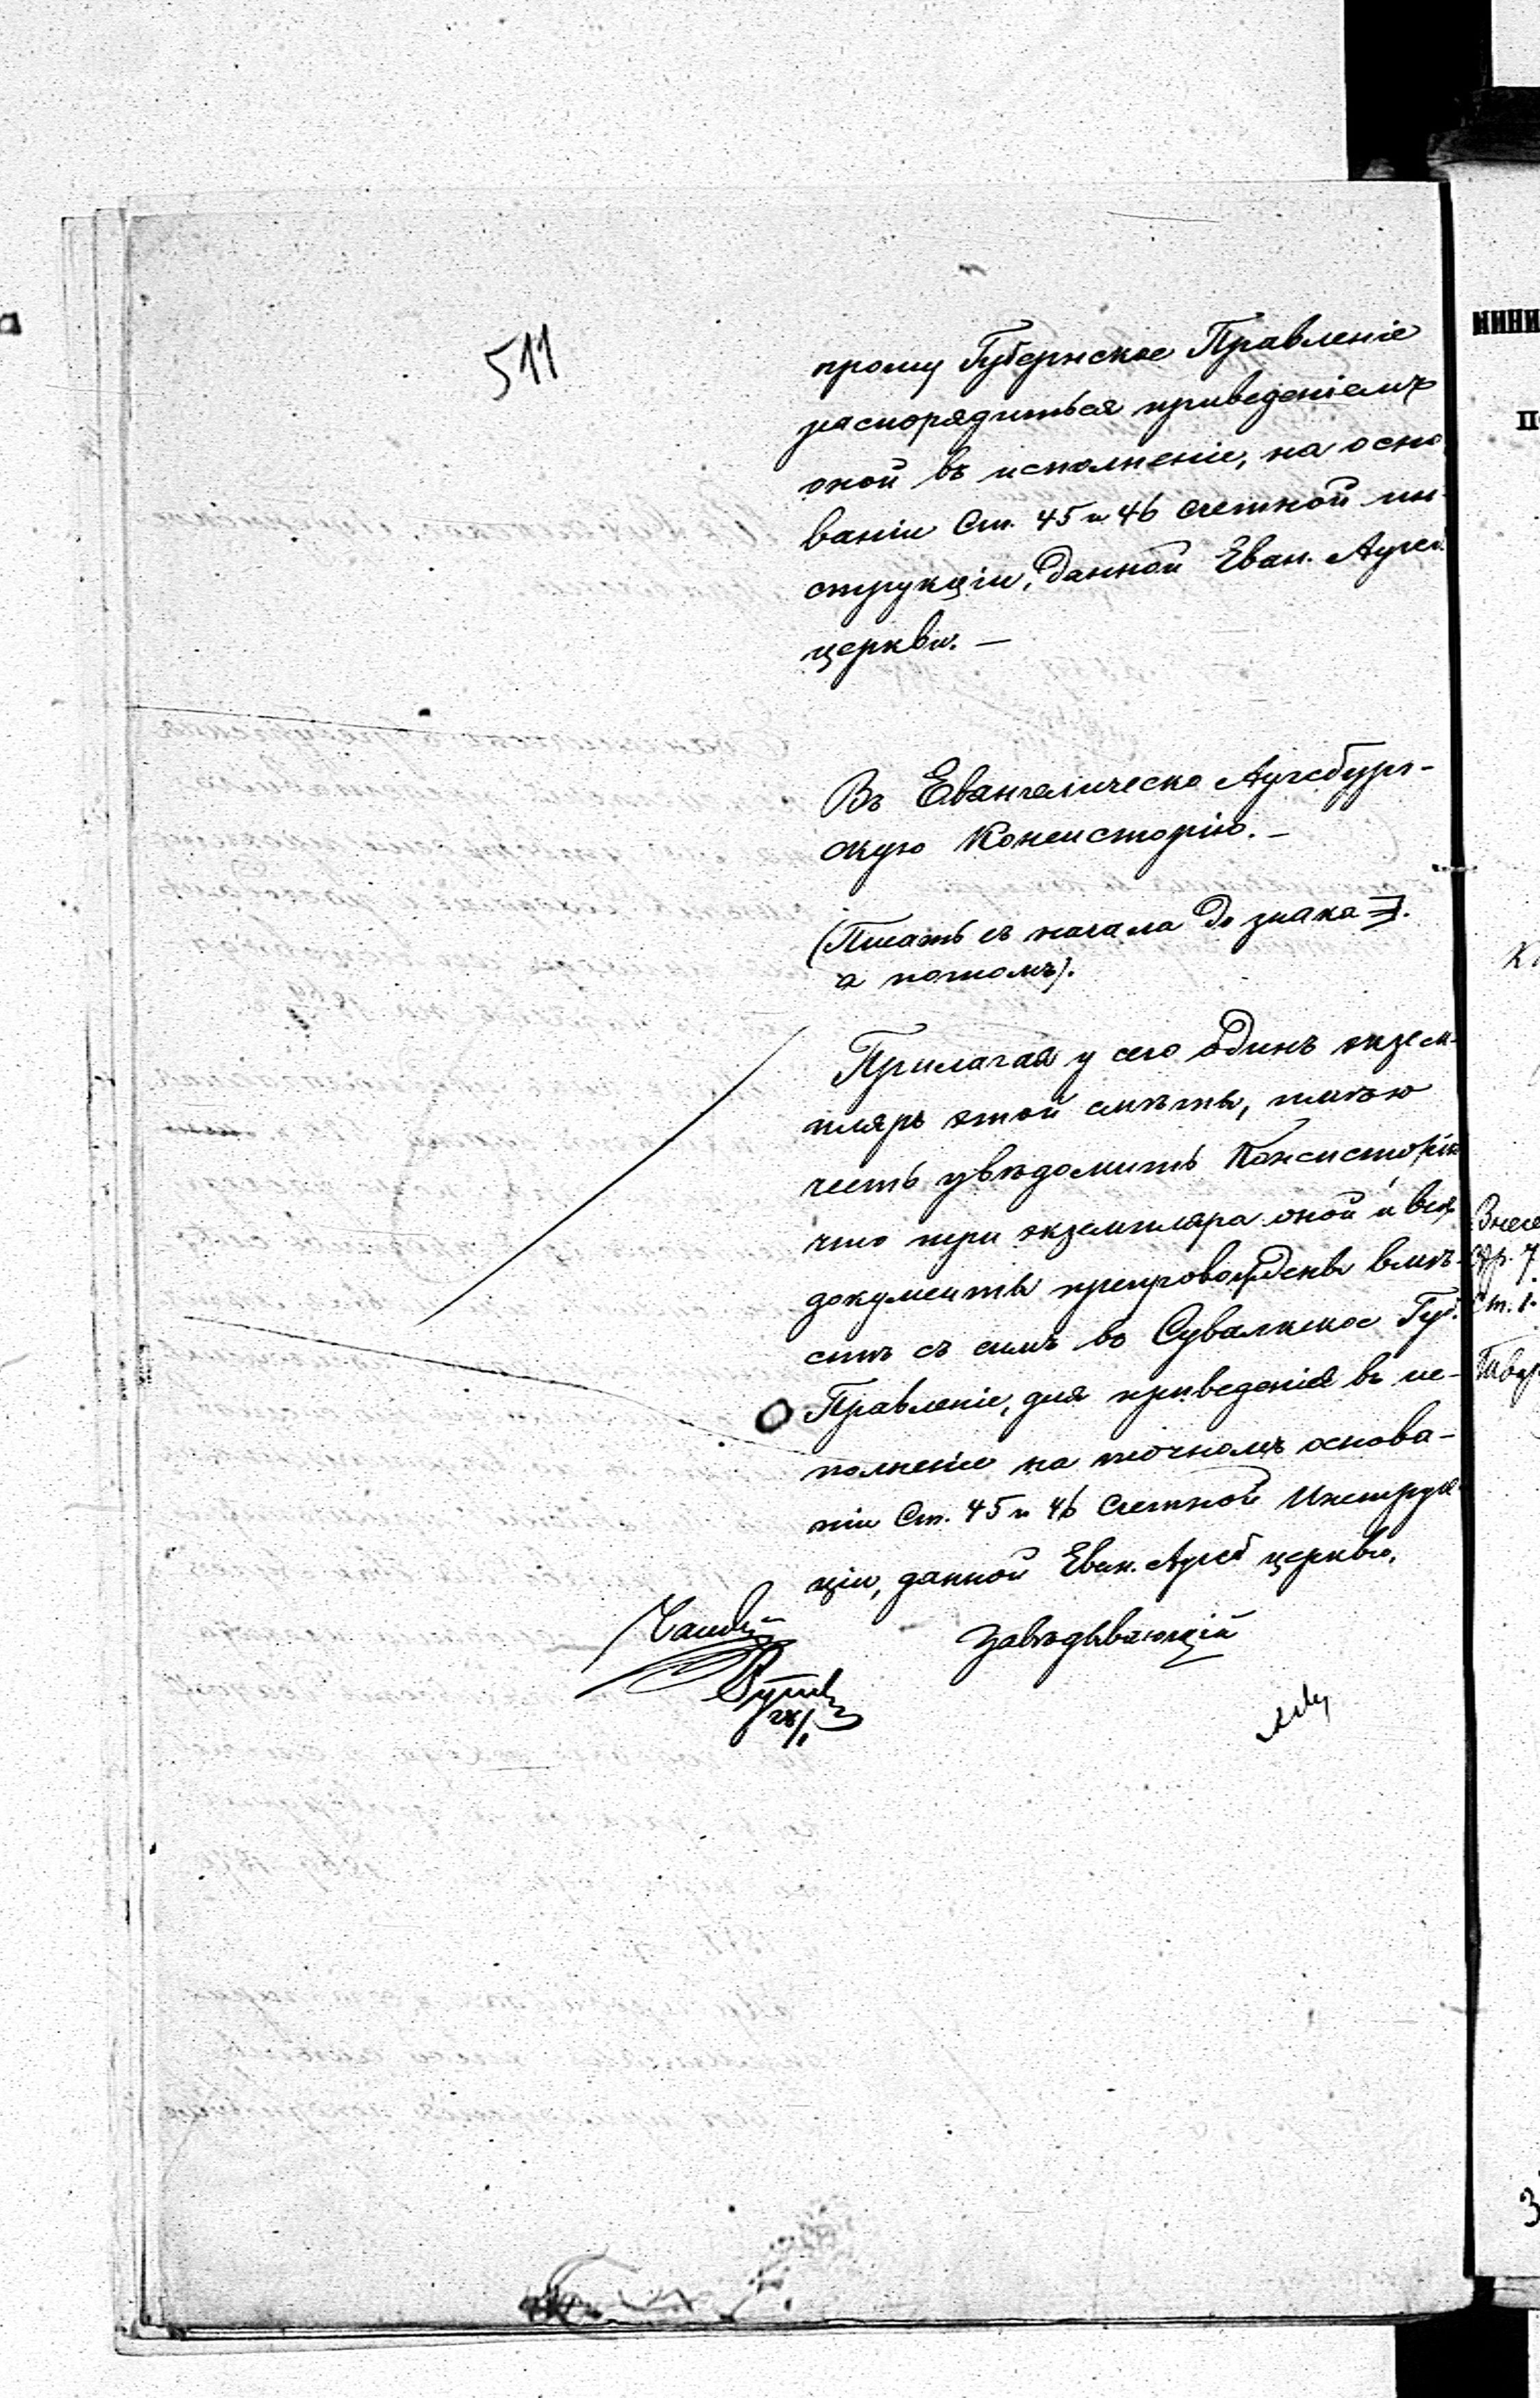 511
прошу Губернское Правленіе
распорядиться приведеніемъ
оной въ исполненіе, на осно
ваніи Ст. 45 и 46 счетной ин-
струкціи, данной Еван. Аугсб.
церкви. —
Въ Евангелическо Аугсбург-
скую Консисторію. —
(Писать съ начала до знака
а потомъ).
Прилагая у сего одинъ экзем-
пляръ этой смѣты, имѣю
честь увѣдомить Консисторію
что три экземпляра оной и всѣ
документы препровождены вмѣ-
стѣ съ симъ въ Сувалкское Губ.
Правленіе, для приведенія въ ис-
полненіе на точномъ основа-
ніи Ст. 45 и 46 Счетной Инструк-
ціи, данной Еван. Аугсб церкви.
Завѣдывающій